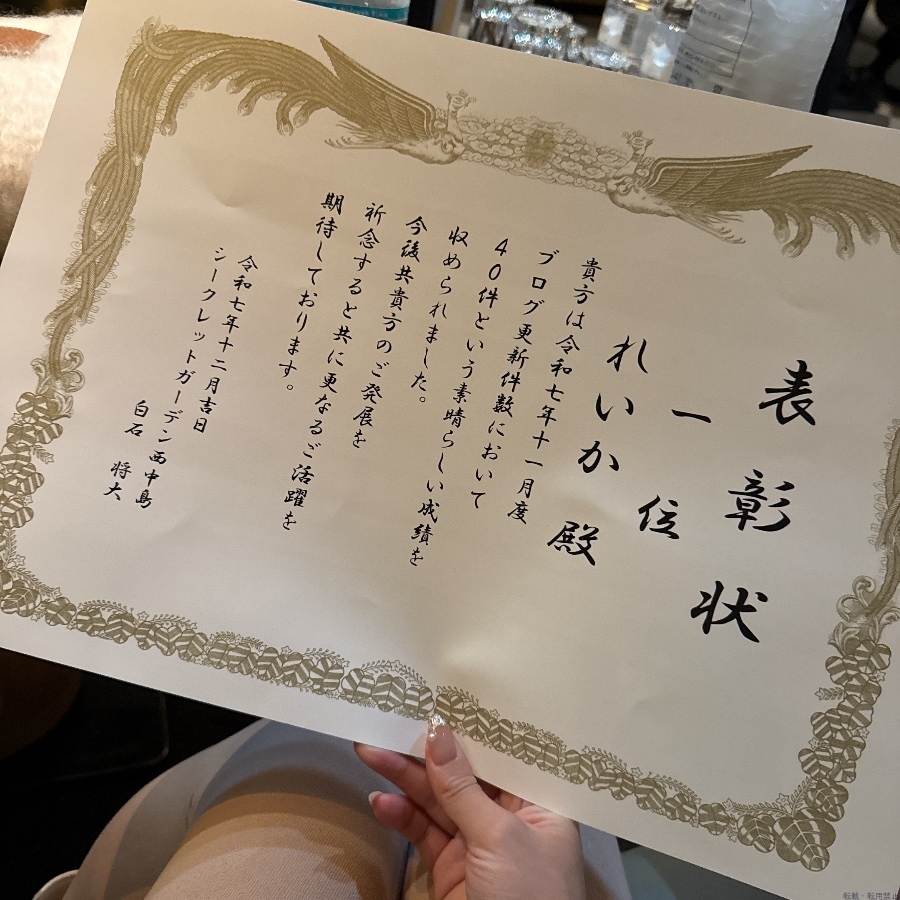 表彰状
一位
れいか 殿
貴方は令和七年十一月度
ブログ更新件数において
40件という素晴らしい成績を
収められました。
今後共貴方のご発展を
祈念すると共に更なるご活躍を
期待しております。
令和七年十二月吉日
シークレットガーデン西中島
白石 将大
転載・転用禁止